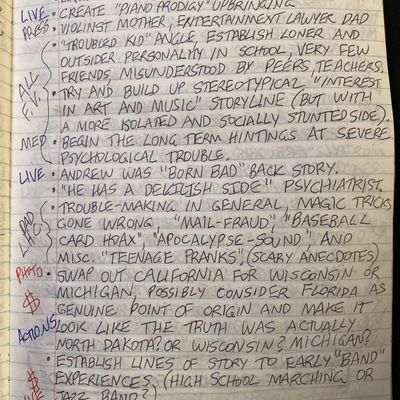 LIVE • CREATE "PIANO PRODIGY" UPBRINGING
PRESS • VIOLINST MOTHER, ENTERTAINMENT LAWYER DAD
• "TROUBLED KID" ANGLE, ESTABLISH LONER AND
OUTSIDER PERSONALITY IN SCHOOL, VERY FEW
FRIENDS, MISUNDERSTOOD BY PEERS, TEACHERS.
ALL F.V. • TRY AND BUILD UP STEREOTYPICAL "INTEREST
IN ART AND MUSIC" STORYLINE (BUT WITH
A MORE ISOLATED AND SOCIALLY STUNTED SIDE).
MED • BEGIN THE LONG TERM HINTINGS AT SEVERE
PSYCHOLOGICAL TROUBLE.
LIVE • ANDREW WAS "BORN BAD" BACK STORY.
• "HE HAS A DEVILISH SIDE" PSYCHIATRIST.
• TROUBLE-MAKING IN GENERAL, MAGIC TRICKS
GONE WRONG, "MAIL-FRAUD", "BASEBALL
CARD HOAX", "APOCALYPSE-SOUND", AND
MISC. "TEENAGE PRANKS", (SCARY ANECDOTES)
PHOTO • SWAP OUT CALIFORNIA FOR WISCONSIN OR
$ MICHIGAN, POSSIBLY CONSIDER FLORIDA AS
GENUINE POINT OF ORIGIN AND MAKE IT
ACTIONS LOOK LIKE THE TRUTH WAS ACTUALLY
NORTH DAKOTA? OR WISCONSIN? MICHIGAN?
• ESTABLISH LINES OF STORY TO EARLY "BAND"
$ EXPERIENCES, (HIGH SCHOOL MARCHING OR
JAZZ BAND?)